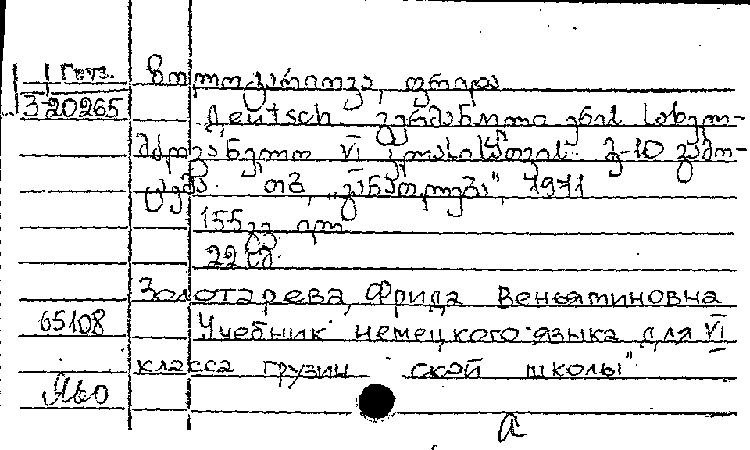 Груз. ზოლოტარიოვა, ფრიდა
3-20265 Deutsch გერმანული ენის სახელ-
მძღვანელო VI კლასისათვის. მე-10 გამო-
ცემა. თბ., „განათლება", 1971
155 გვ.
22 სმ.
Золотарева, Фрида Вениаминовна
65108 Учебник немецкого языка для VI
класса грузин ской школы"
а